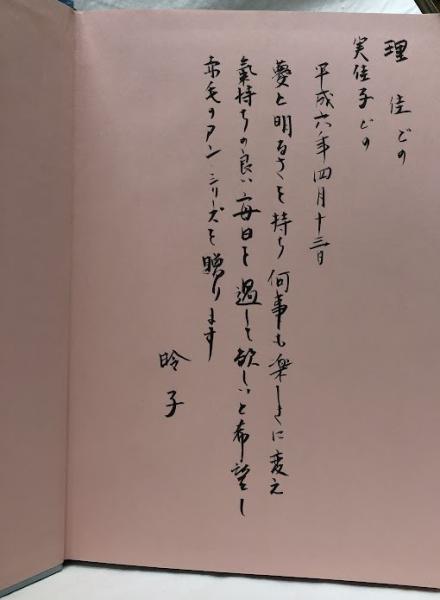 理佳どの
実佳子どの
平成六年四月十三日
夢と明るさを持ち何事も楽しさに変え
氣持ちの良い毎日を過して欲しいと希望し
赤毛のアンシリーズを贈ります
昤子